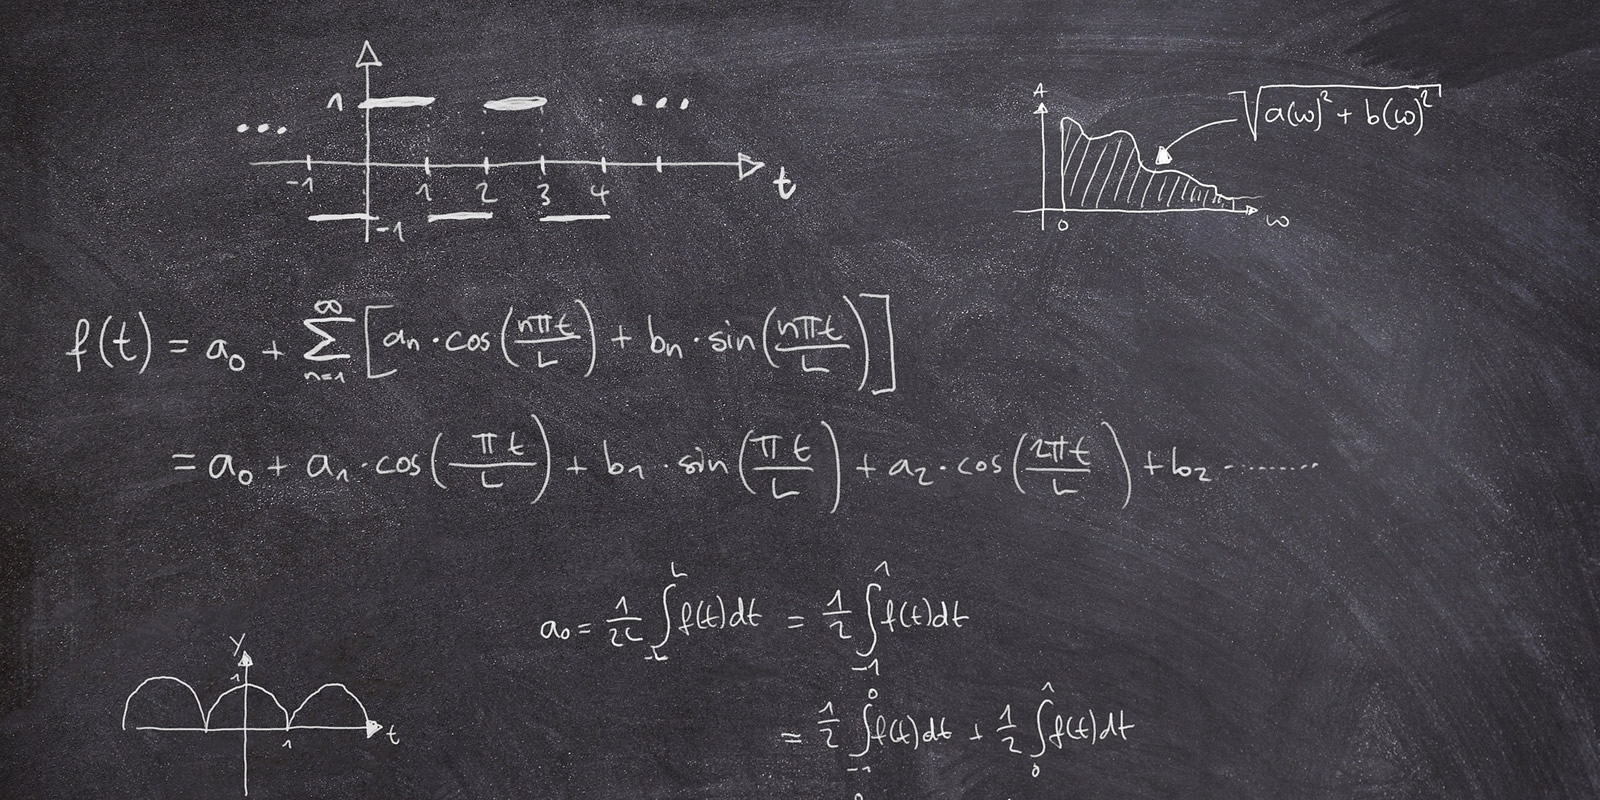 1
-1 1 2 3 4 t
-1
A
√(a(ω)² + b(ω)²)
0 ω
f(t) = a₀ + ∑_{n=1}^{∞} [aₙ · cos(nπt/L) + bₙ · sin(nπt/L)]
= a₀ + a₁ · cos(πt/L) + b₁ · sin(πt/L) + a₂ · cos(2πt/L) + b₂ ·········
a₀ = 1/2L ∫_{-L}^{L} f(t)dt = 1/2 ∫_{-1}^{1} f(t)dt
= 1/2 ∫_{-1}^{0} f(t)dt + 1/2 ∫_{0}^{1} f(t)dt
y
1
1 t